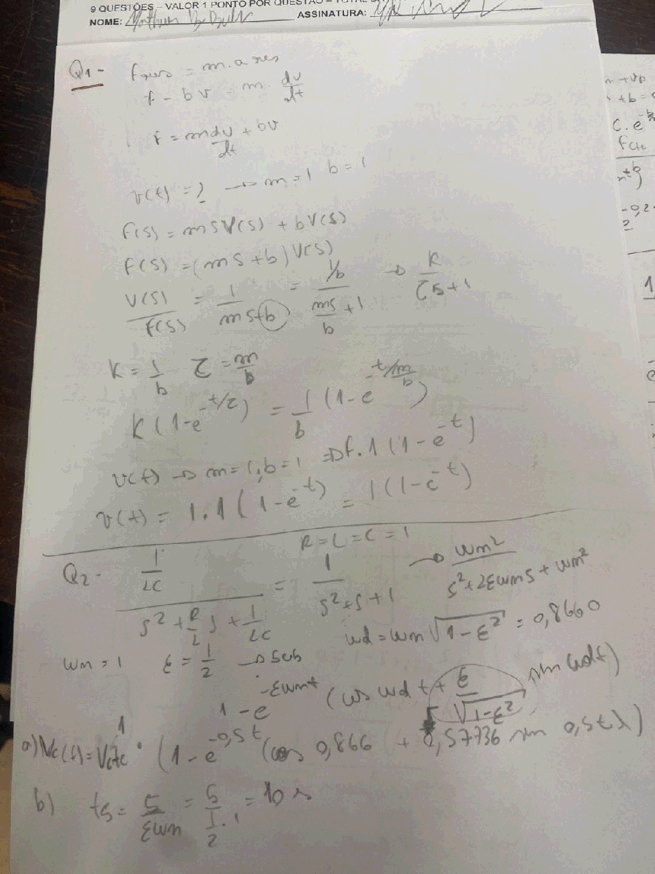 9 QUESTÕES – VALOR 1 PONTO POR QUESTÃO
NOME: ASSINATURA:
Q1 - F = m.a res
f - bv = m dv/dt
f = m dv/dt + bv
v(t) = ? → m=1 b=1
f(s) = msV(s) + bV(s)
F(s) = (ms+b) V(s)
V(s)/F(s) = 1/(ms+b) = (1/b)/((m/b)s+1) → K/(τs+1)
K = 1/b τ = m/b
K(1-e^(-t/τ)) = 1/b (1-e^(-t/(m/b)))
v(t) → m=1, b=1 ⇒ f.1(1-e^(-t))
v(t) = 1.1(1-e^(-t)) = 1(1-e^(-t))
R=L=C=1
Q2 - (1/LC)/(s²+(R/L)s+1/LC) = 1/(s²+s+1) → wn²/(s²+2ξwns+wn²)
wn=1 ξ=1/2 → sub wd = wn√(1-ξ²) = 0,8660
1 - e^(-ξwnt) (cos wd t + ξ/√(1-ξ²) sin wdt)
a) Vc(t) = Vcte^1 . (1-e^(-0,5t) (cos 0,866 + 0,57736 sin 0,5t))
b) ts = 5/(ξwn) = 5/(1/2 . 1) = 10 s